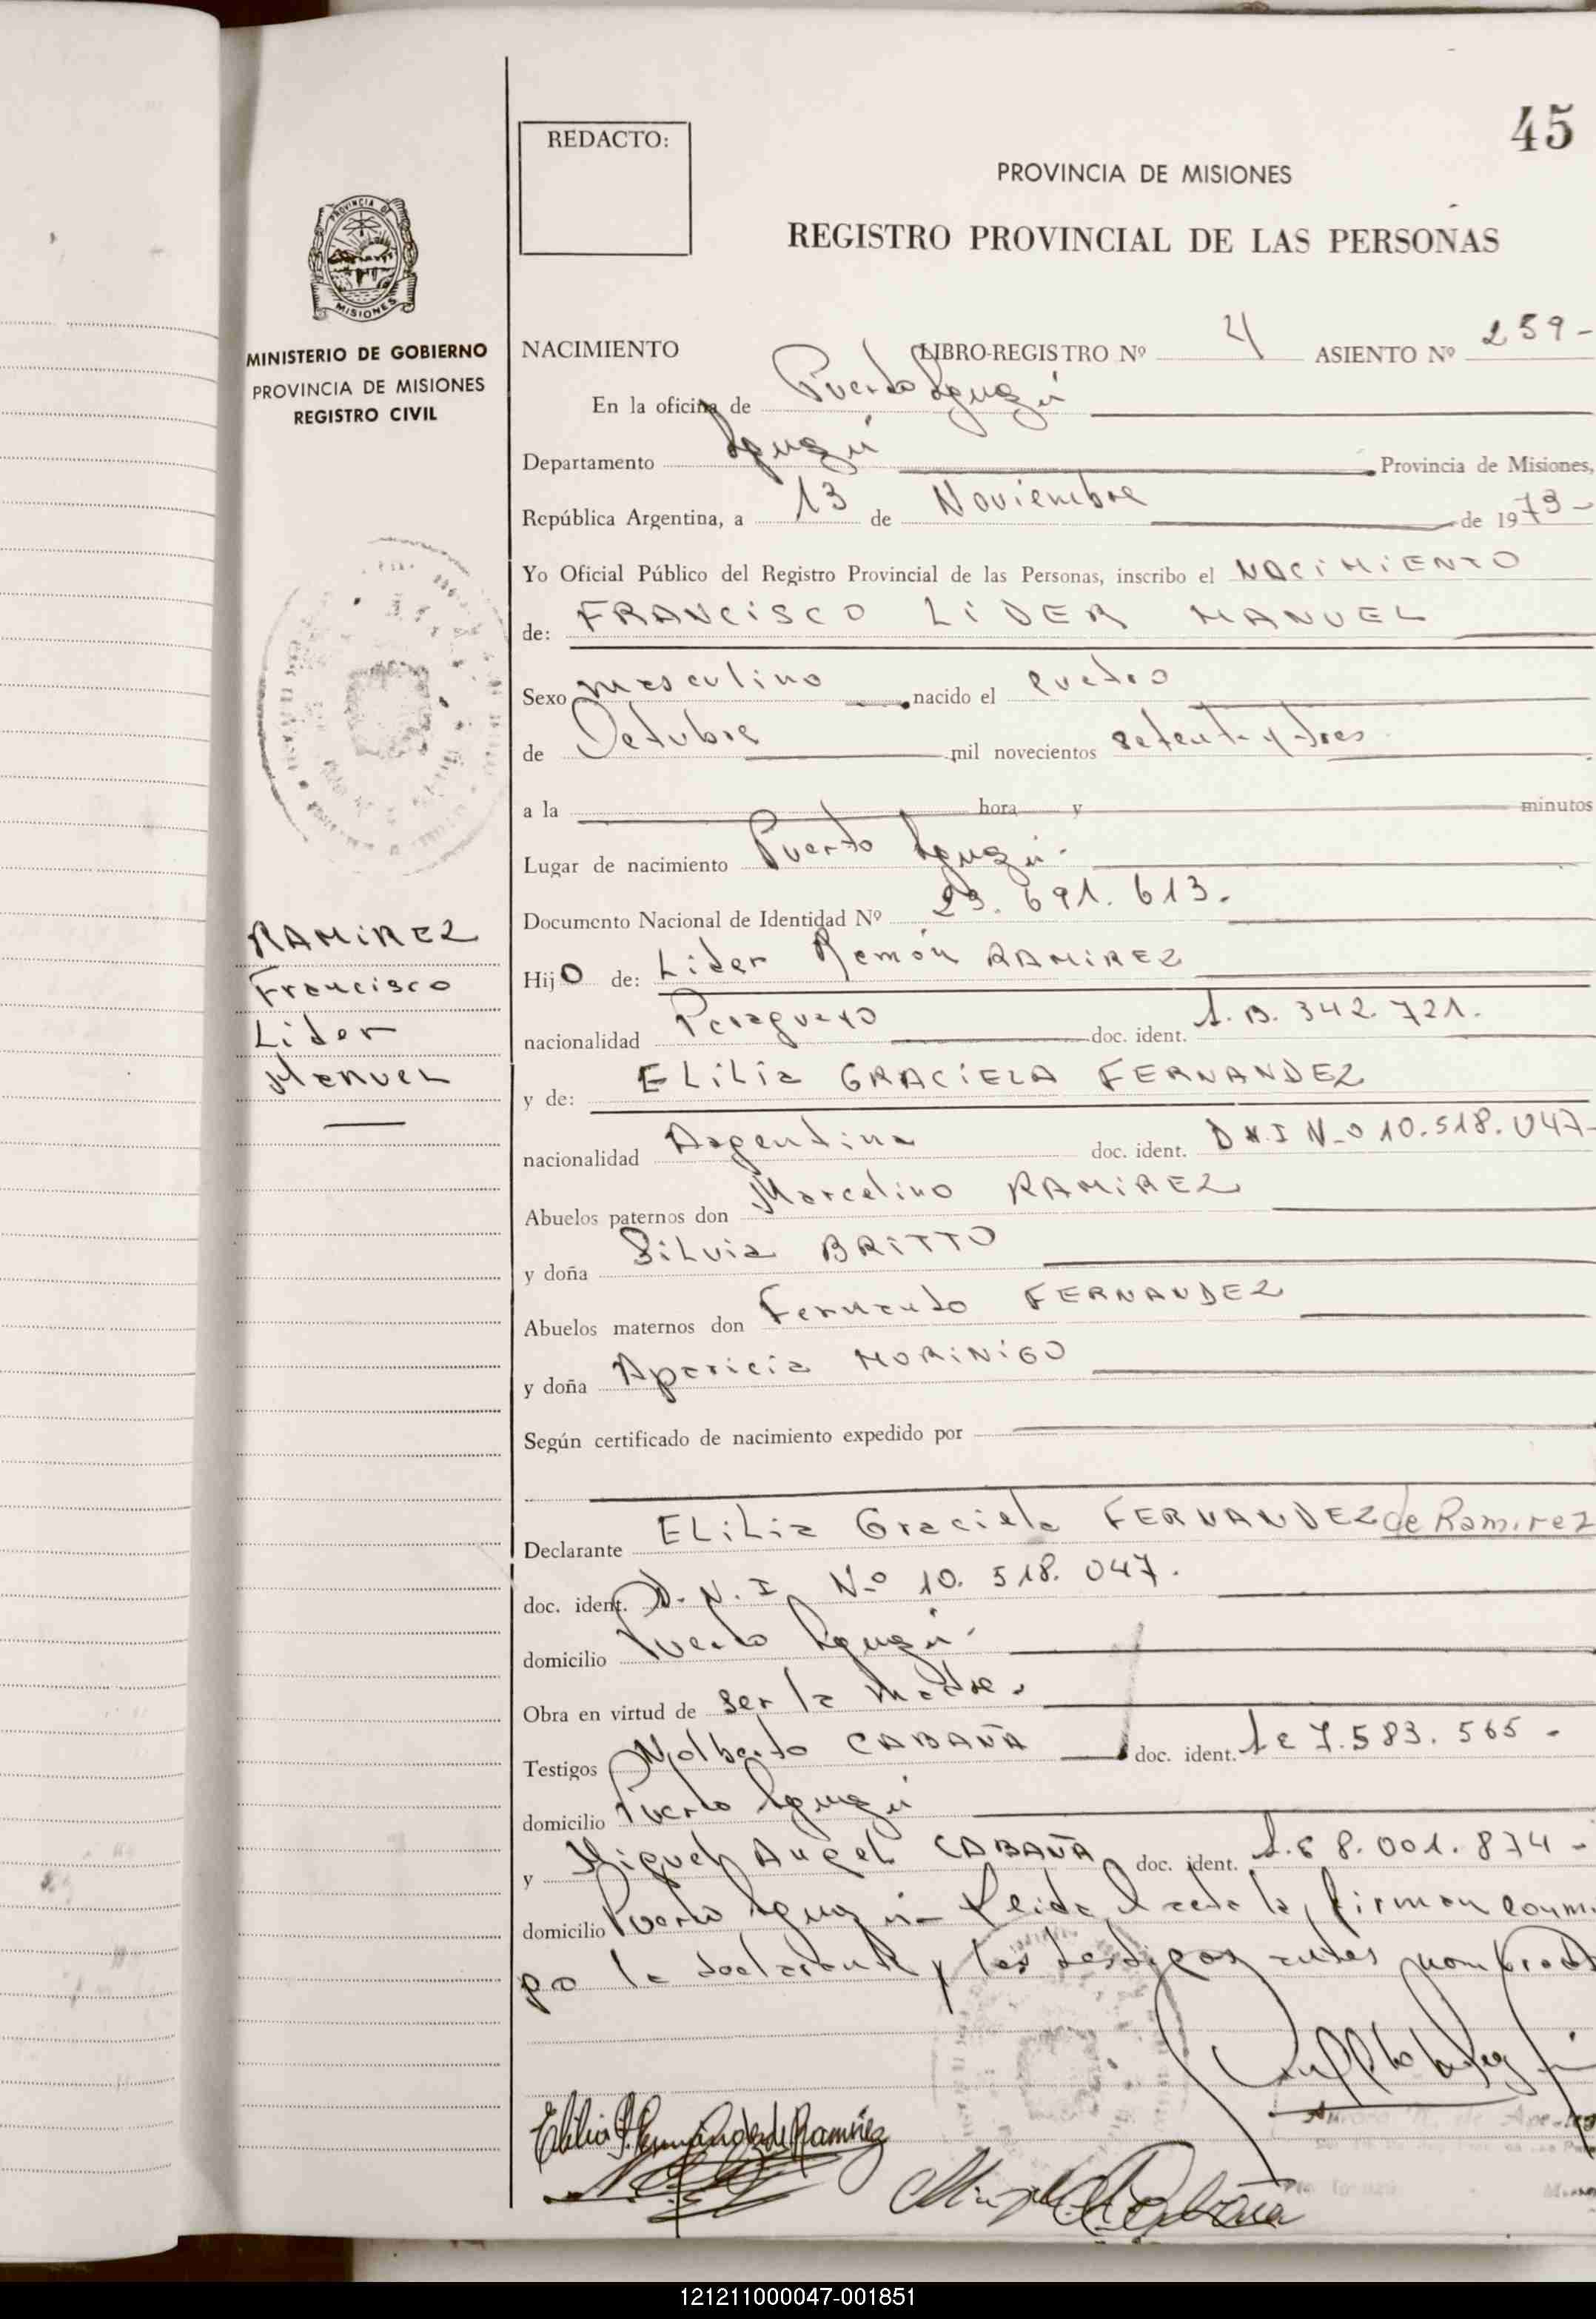 45
REDACTO:
PROVINCIA DE MISIONES
REGISTRO PROVINCIAL DE LAS PERSONAS
PROVINCIA DE
MISIONES
MINISTERIO DE GOBIERNO
PROVINCIA DE MISIONES
REGISTRO CIVIL
NACIMIENTO LIBRO-REGISTRO Nº 4 ASIENTO Nº 259-
En la oficina de Puerto Iguazú
Departamento Iguazú Provincia de Misiones,
República Argentina, a 13 de Noviembre de 1973-
Yo Oficial Público del Registro Provincial de las Personas, inscribo el NACIMIENTO
de: FRANCISCO LIDER MANUEL
Sexo masculino nacido el cuatro
de Octubre mil novecientos setenta y tres
a la hora y minutos
Lugar de nacimiento Puerto Iguazú.
Documento Nacional de Identidad Nº 23.691.613.
RAMIREZ
Francisco
Lider
Manuel
Hijo de: Lider Ramón RAMIREZ
nacionalidad Paraguayo doc. ident. 1.B. 342.721.
y de: ELiLia GRACIELA FERNANDEZ
nacionalidad Argentina doc. ident. D.N.I Nº 10.518.047-
Abuelos paternos don Marcelino RAMIREZ
y doña SiLvia BRITTO
Abuelos maternos don Fernando FERNANDEZ
y doña Aparicia MORINIGO
Según certificado de nacimiento expedido por
Declarante ELiLia Graciela FERNANDEZ de Ramirez
doc. ident. D.N.I Nº 10.518.047.
domicilio Puerto Iguazú.
Obra en virtud de ser la madre.
Testigos Nolberto CABAÑA doc. ident. Le 7.583.565-
domicilio Puerto Iguazú
y Miguel Angel CABAÑA doc. ident. L.E 8.001.874-
domicilio Puerto Iguazú- Leida el acta la, firman conmi
go la declarante y los testigos antes nombrados
Elilia G. Fernandez de Ramirez
Miguel A Cabaña
121211000047-001851